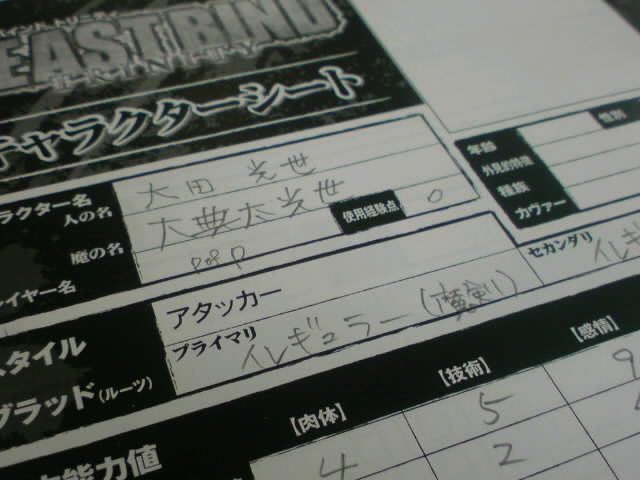 EAST BIND
TRINITY
チャラクターシート
ラクター名
人の名 大田 光世
魔の名 大典太光世
使用経験点 0
イヤー名 popp
年齢
性別
外見的特徴
種族
カヴァー
スタイル アタッカー
ブラッド(ルーツ)
プライマリ イレギュラー(魔剣)
セカンダリ イレギ
【肉体】 【技術】 【感情】
能力値
4 5 9
2